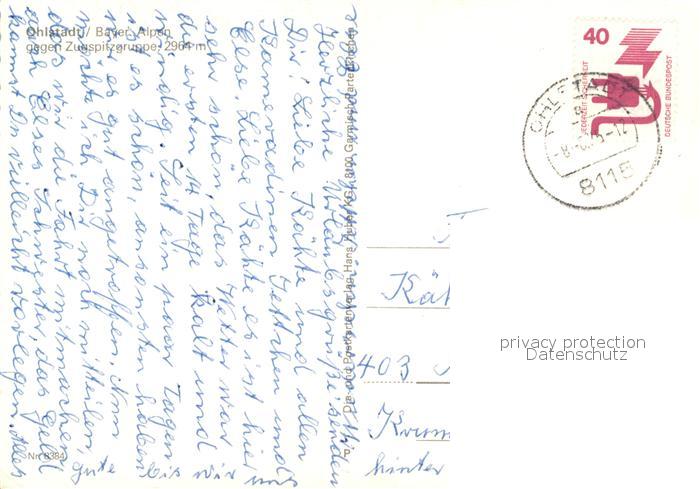 Ohlstadt / Bayer. Alpen
gegen Zugspitzgruppe, 2964 m
Herzliche Urlaubsgrüße senden
Dir, liebe Käthe und allen
Kameradinen Jettchen und
Else Liebe Käthe es ist hier
sehr schön, das Wetter war
die ersten 14 Tage kalt und
windig. Seit ein paar Tagen
ist es schön, ansonsten haben
wir es gut angetroffen. Nun
möchte ich Dir noch mitteilen,
das wir die Fahrt mitmachen
auch Elses Schwester, das Geld
kannst Du vielleicht vorlegen. Alles
gute bis wir uns
Dia- und Postkartenverlag Hans Huber KG, 8100 Garmisch-Partenkirchen
Nr. 8384
P
40
JEDERZEIT SICHERHEIT
DEUTSCHE BUNDESPOST
OHLSTADT
8115
Kät
403
Krum
hinter
privacy protection
Datenschutz